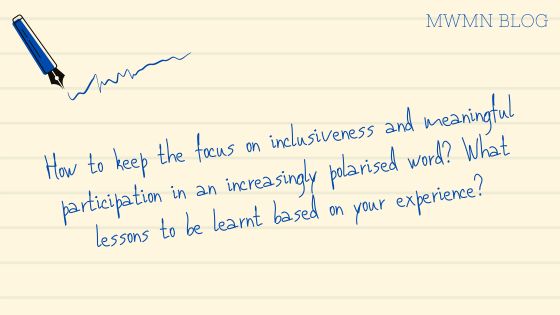 MWMN BLOG
How to keep the focus on inclusiveness and meaningful
participation in an increasingly polarised word? What
lessons to be learnt based on your experience?